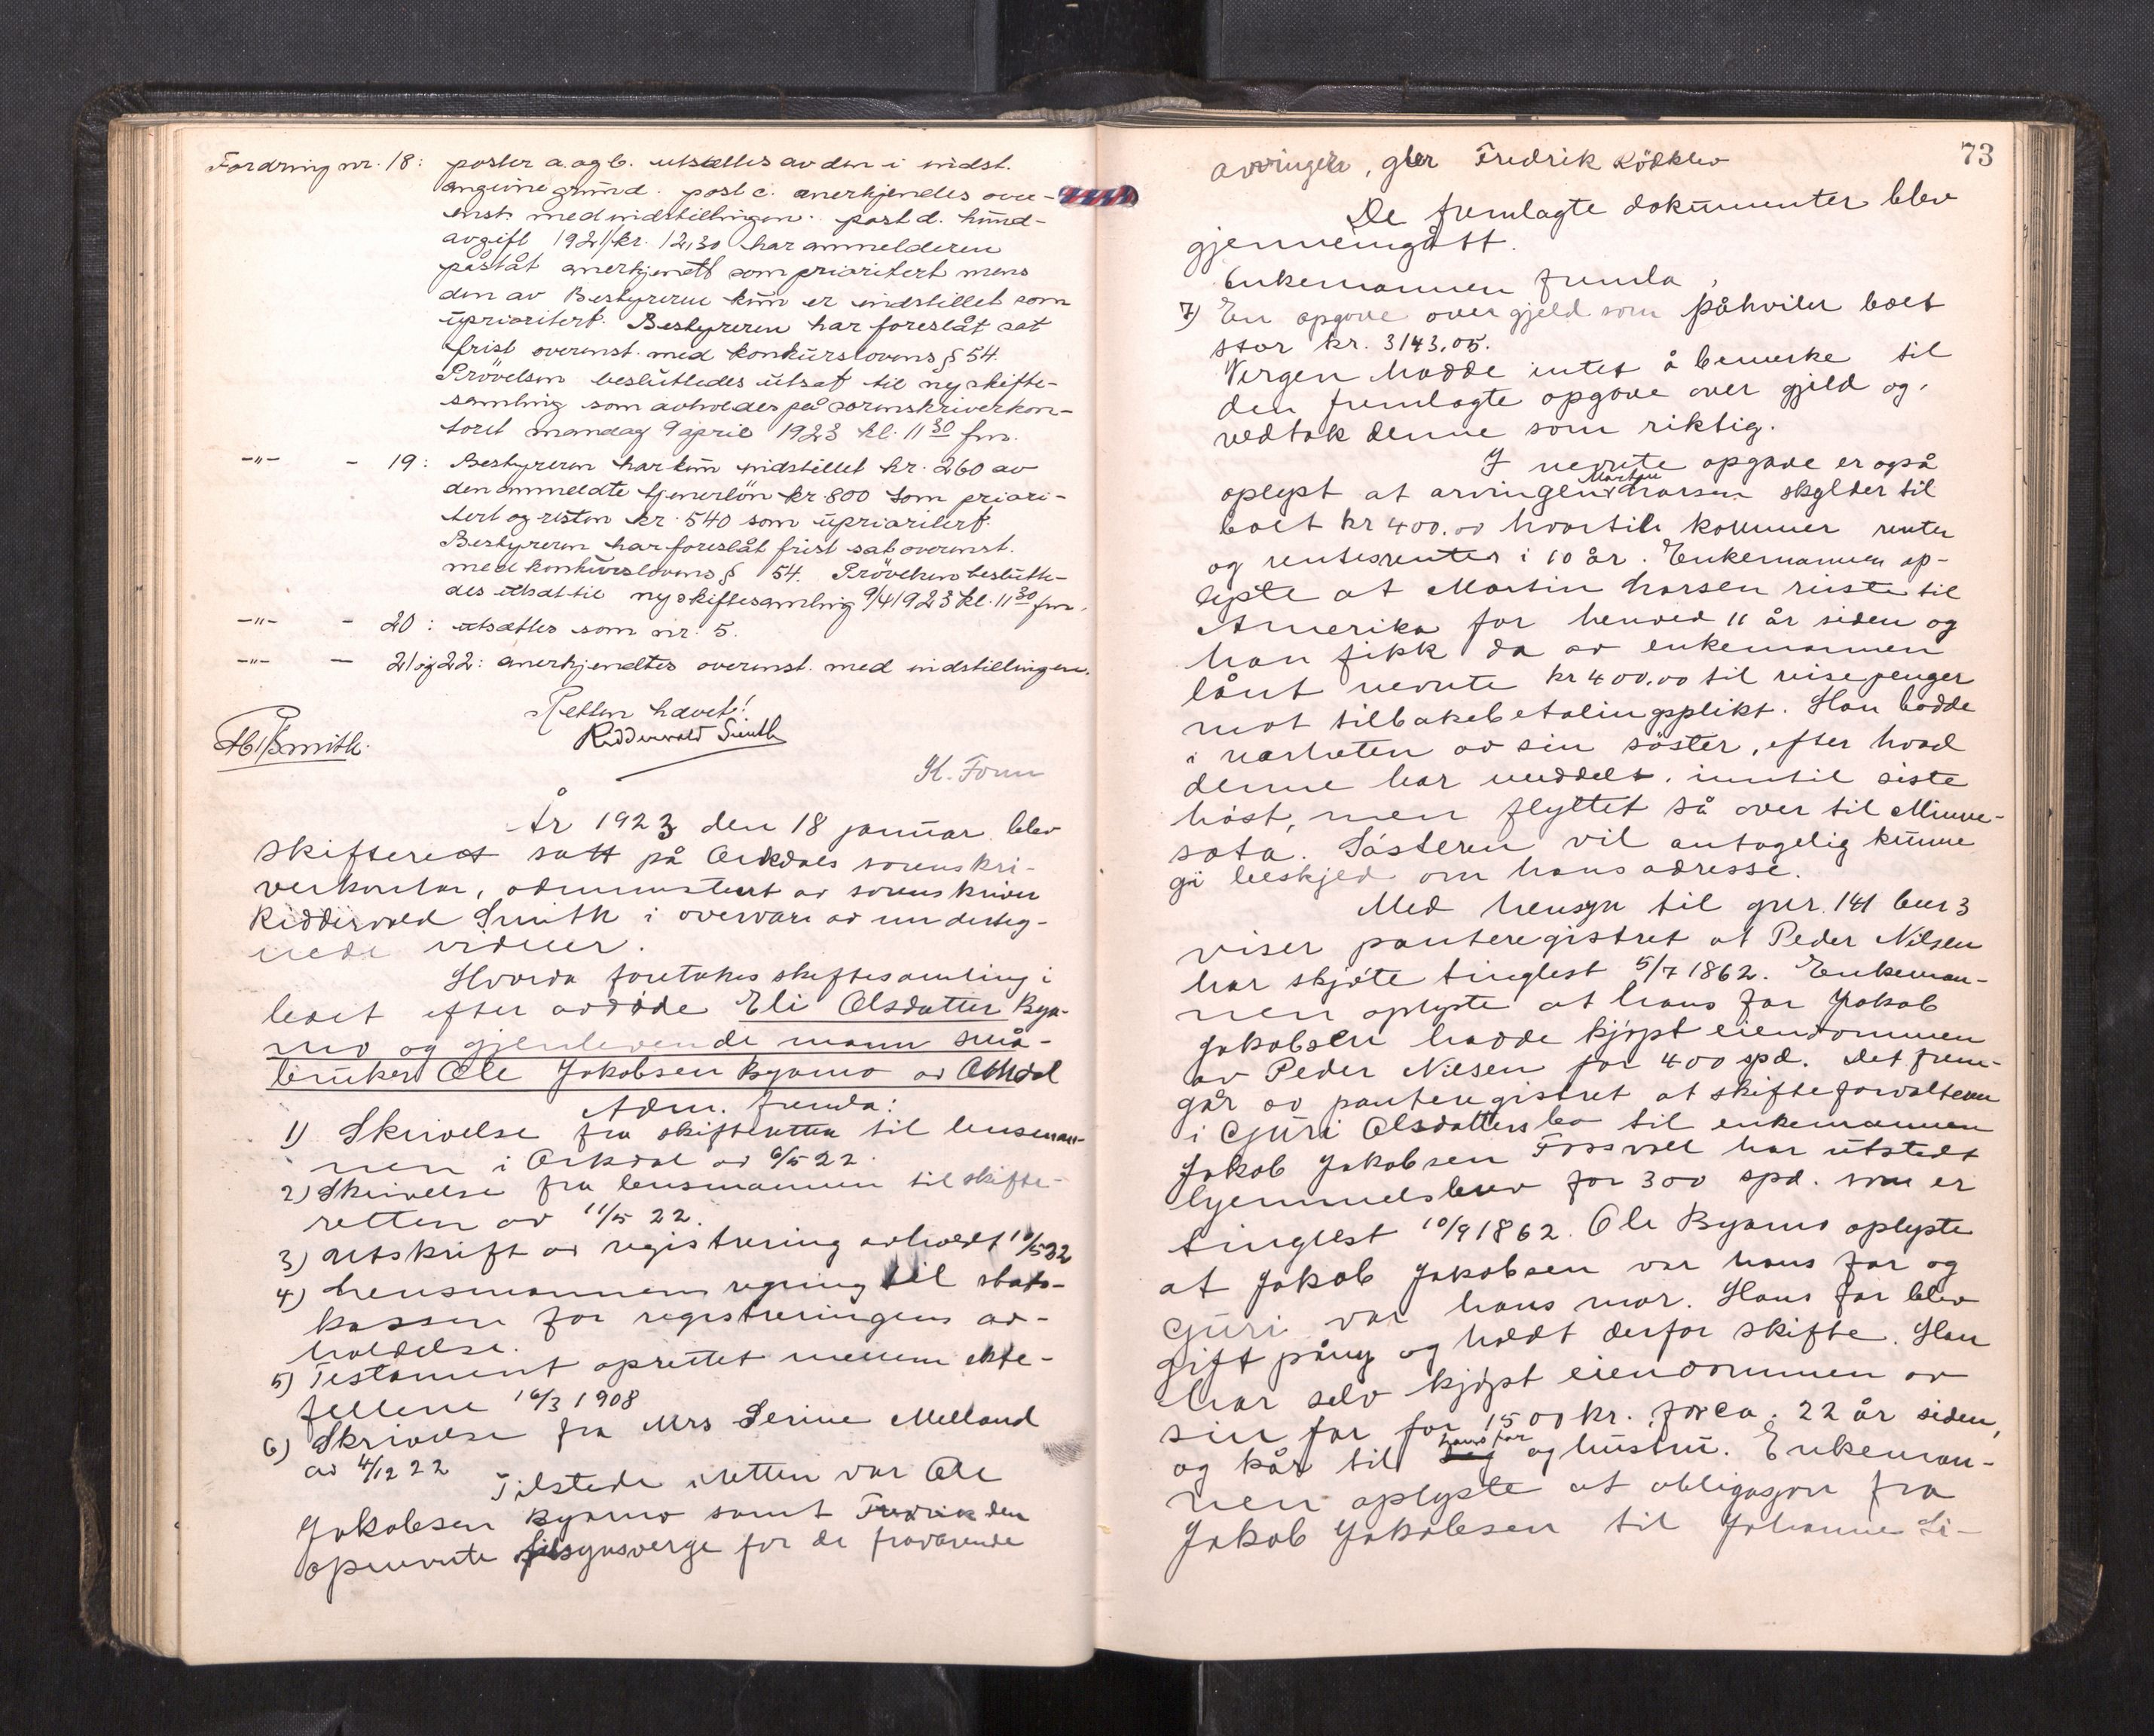 Fordring nr. 18: poster a. og b. utsættes av den i indst.
angivne grund. post c. anerkjendes over-
enst. med indstillingen. post d. hund-
avgift 1921 kr. 12,30 har anmelderen
påståt anerkjendt som prioritert mens
den av Bestyreren kun er indstillet som
uprioritert. Bestyreren har foreslåt sat
frist overenst. med konkurslovens § 54.
Prövelsen besluttedes utsat til ny skifte-
samling som avholdes på sorenskriverkon-
toret mandag 9 april 1923 kl. 11 30 fm.
-"- - 19: Bestyreren har kun indstillet kr. 260 av
den anmeldte tjenerlön kr. 800 som priori-
tert og resten kr. 540 som uprioritert.
Bestyreren har foreslåt frist sat overenst.
med konkurslovens § 54. Prövelsen beslutte-
des utsat til ny skiftesamling 9/4 1923 kl. 11 30 fm.
-"- - 20: utsættes som nr. 5.
-"- - 21 og 22: anerkjendtes overenst. med indstillingen.
Retten hævet!
Ridderwold Smith
Smith.
K. Forn
År 1923 den 18 januar blev
skifterett satt på Orkdals sorenskri-
verkontor, administrert av sorenskriver
Ridderwold Smith i overvær av underteg-
nede vidner.
Hvorda foretokes skiftesamling i
boet efter avdöde Eli Olsdatter Bya-
mo og gjenlevende mann små-
bruker Ole Jakobsen Byamo av Orkdal
Adm. fremla:
1) Skrivelse fra skifteretten til lensman-
nen i Orkdal av 6/5 22.
2) Skrivelse fra lensmannen til skifte-
retten av 11/5 22.
3) Utskrift av registrering avholdt 10/5 22
4) Lensmannens regning til stats-
kassen for registreringens av-
holdelse.
5) Testament oprettet mellem ekte-
fellene 16/3 1908
6) Skrivelse fra Mrs Serine Melland
av 4/12 22
Tilstede i retten var Ole
Jakobsen Byamo samt Fredrik den
opnevnte tilsynsverge for de fraværende
73
arvinger, gbr Fredrik Rödklev
De fremlagte dokumenter blev
gjennemgått.
Enkemannen fremla,
7) En opgave over gjeld som påhviler boet
stor kr. 3143.05.
Vergen hadde intet å bemerke til
den fremlagte opgave over gjeld og
vedtok denne som riktig.
I nevnte opgave er også
oplyst at arvingen Martin Larsen skylder til
boet kr 400.00 hvortil kommer renter
og rentesrenter i 10 år. Enkemannen op-
lyste at Martin Larsen reiste til
Amerika for henved 11 år siden og
han fikk da av enkemannen
lånt nevnte kr 400.00 til reisepenger
mot tilbakebetalingsplikt. Han bodde
i nærheten av sin söster, efter hvad
denne har meddelt, inntil siste
höst, men flyttet så over til Minne-
sota. Sösteren vil antagelig kunne
gi beskjed om hans adresse.
Med hensyn til gnr. 141 bnr 3
viser panteregistret at Peder Nilsen
har skjöte tinglest 5/7 1862. Enkeman-
nen oplyste at hans far Jakob
Jakobsen hadde kjöpt eiendommen
av Peder Nilsen for 400 spd. Det frem-
går av panteregistret at skifteforvalteren
i Guri Olsdatters bo til enkemannen
Jakob Jakobsen Fossvoll har utstedt
hjemmelsbrev for 300 spd. som er
tinglest 10/9 1862. Ole Byamo oplyste
at Jakob Jakobsen var hans far og
Guri var hans mor. Hans far blev
gift påny og holdt derfor skifte. Han
har selv kjöpt eiendommen av
sin far for 1500 kr. for ca. 22 år siden,
og kår til hans far og hustru. Enkeman-
nen oplyste at obligasjon fra
Jakob Jakobsen til Johanne Li-